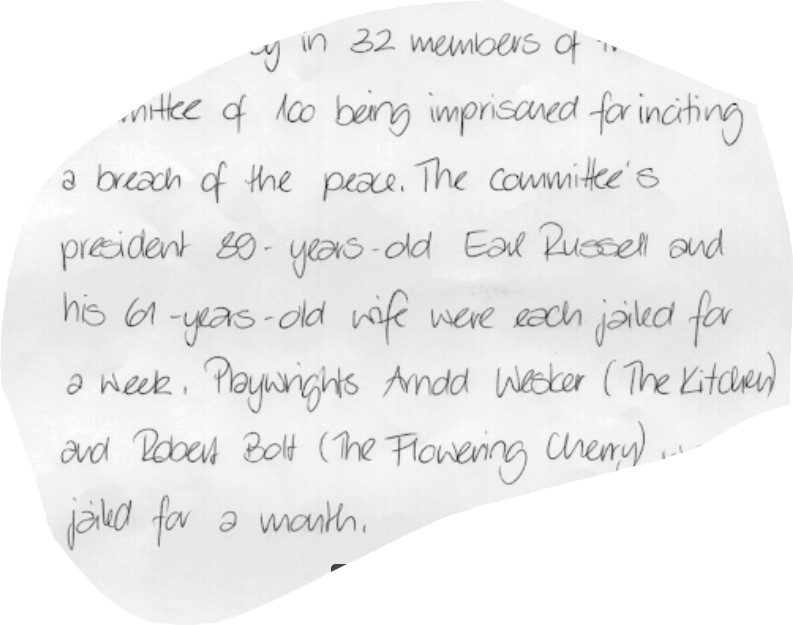 in 32 members of
of 100 being imprisoned for inciting
a breach of the peace. The committee's
president 89-years-old Earl Russell and
his 61-years-old wife were each jailed for
a week. Playwrights Arnold Wesker (The Kitchen)
and Robert Bolt (The Flowering Cherry)
jailed for a month.